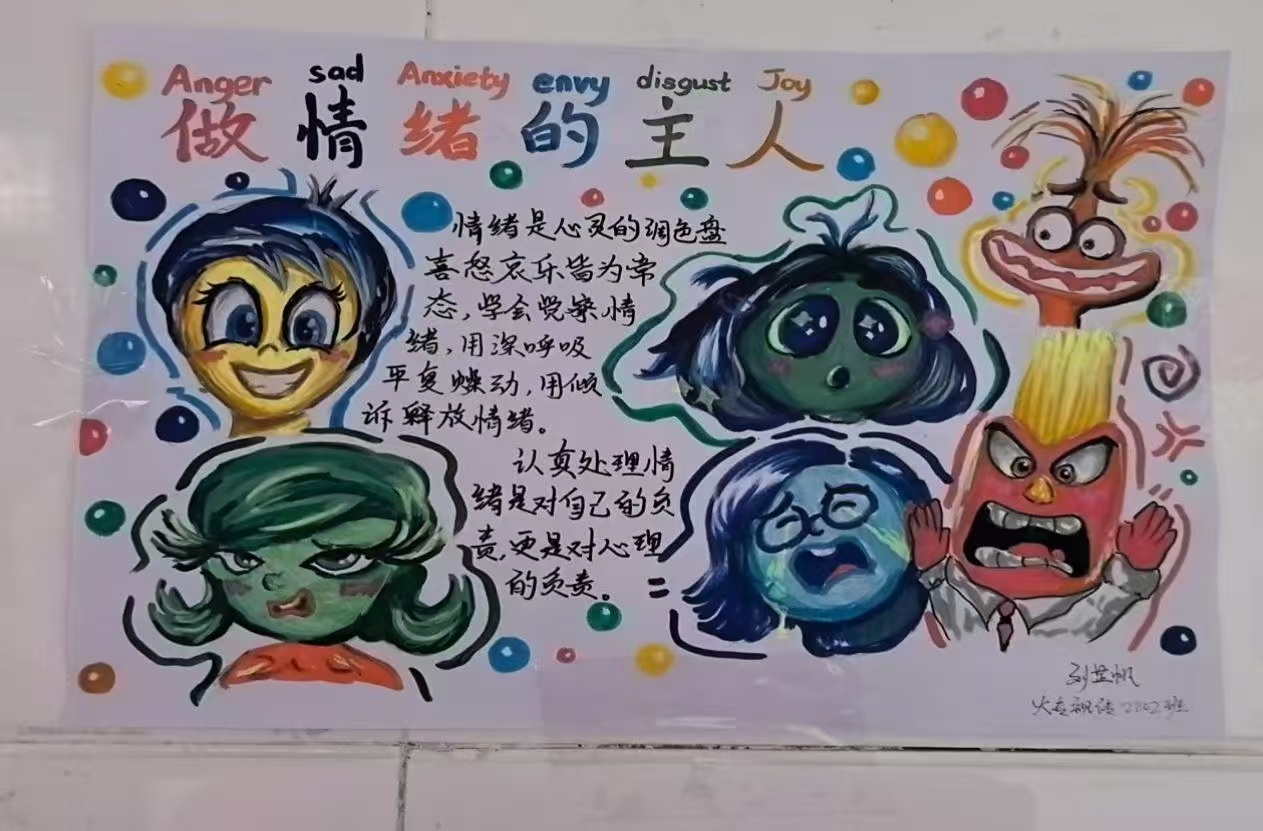 Anger sad Anxiety envy disgust Joy
做情绪的主人
情绪是心灵的调色盘
喜怒哀乐皆为常
态,学会觉察情
绪,用深呼吸
平复燥动,用倾
诉释放情绪。
认真处理情
绪是对自己的负
责,更是对心理
的负责。